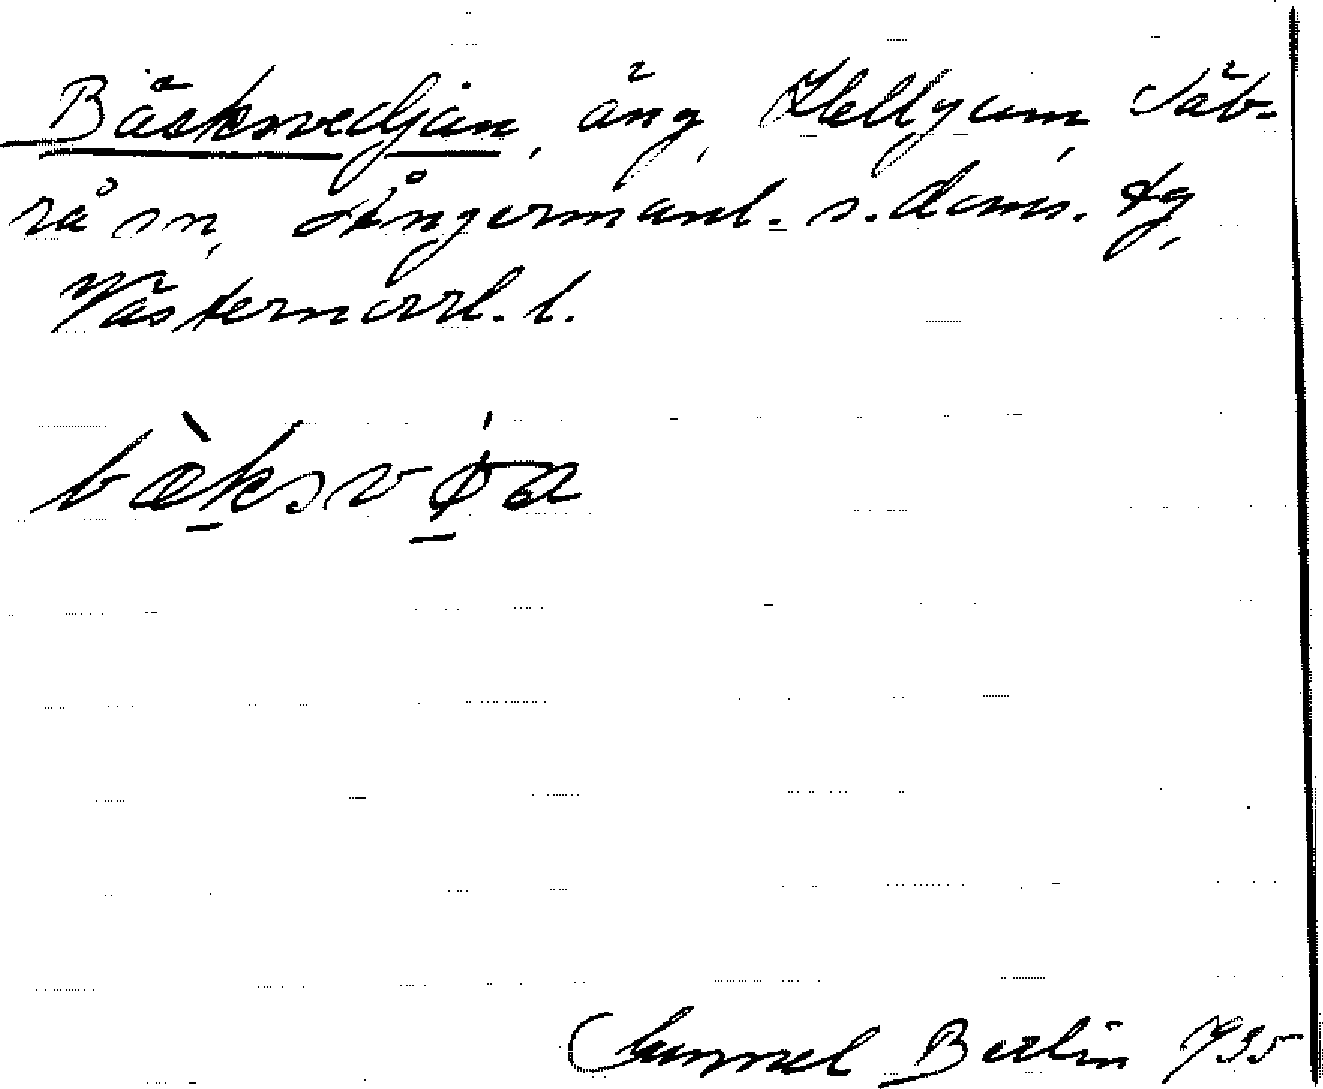 Bäcksvedjan, äng, Hellgum, Säb-
rå sn, Ångermanl. s. doms. tg,
Västernorrl. l.
bæksvøa
Gunnel Berlin 1935